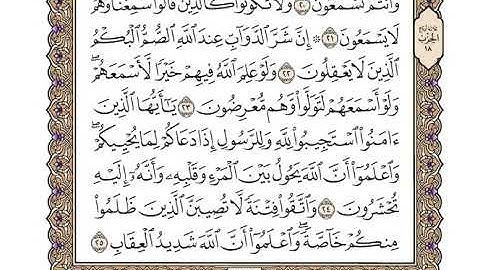 وَأَنتُمْ تَسْمَعُونَ ٢٠ وَلَا تَكُونُوا۟ كَٱلَّذِينَ قَالُوا۟ سَمِعْنَا وَهُمْ
لَا يَسْمَعُونَ ٢١ ۞ إِنَّ شَرَّ ٱلدَّوَآبِّ عِندَ ٱللَّهِ ٱلصُّمُّ ٱلْبُكْمُ
ٱلَّذِينَ لَا يَعْقِلُونَ ٢٢ وَلَوْ عَلِمَ ٱللَّهُ فِيهِمْ خَيْرًا لَّأَسْمَعَهُمْ ۖ
وَلَوْ أَسْمَعَهُمْ لَتَوَلَّوا۟ وَّهُم مُّعْرِضُونَ ٢٣ يَـٰٓأَيُّهَا ٱلَّذِينَ
ءَامَنُوا۟ ٱسْتَجِيبُوا۟ لِلَّهِ وَلِلرَّسُولِ إِذَا دَعَاكُمْ لِمَا يُحْيِيكُمْ ۖ
وَٱعْلَمُوٓا۟ أَنَّ ٱللَّهَ يَحُولُ بَيْنَ ٱلْمَرْءِ وَقَلْبِهِۦ وَأَنَّهُۥٓ إِلَيْهِ
تُحْشَرُونَ ٢٤ وَٱتَّقُوا۟ فِتْنَةً لَّا تُصِيبَنَّ ٱلَّذِينَ ظَلَمُوا۟
مِنكُمْ خَآصَّةً ۖ وَٱعْلَمُوٓا۟ أَنَّ ٱللَّهَ شَدِيدُ ٱلْعِقَابِ ٢٥
ٱلْحِزْبُ
١٨